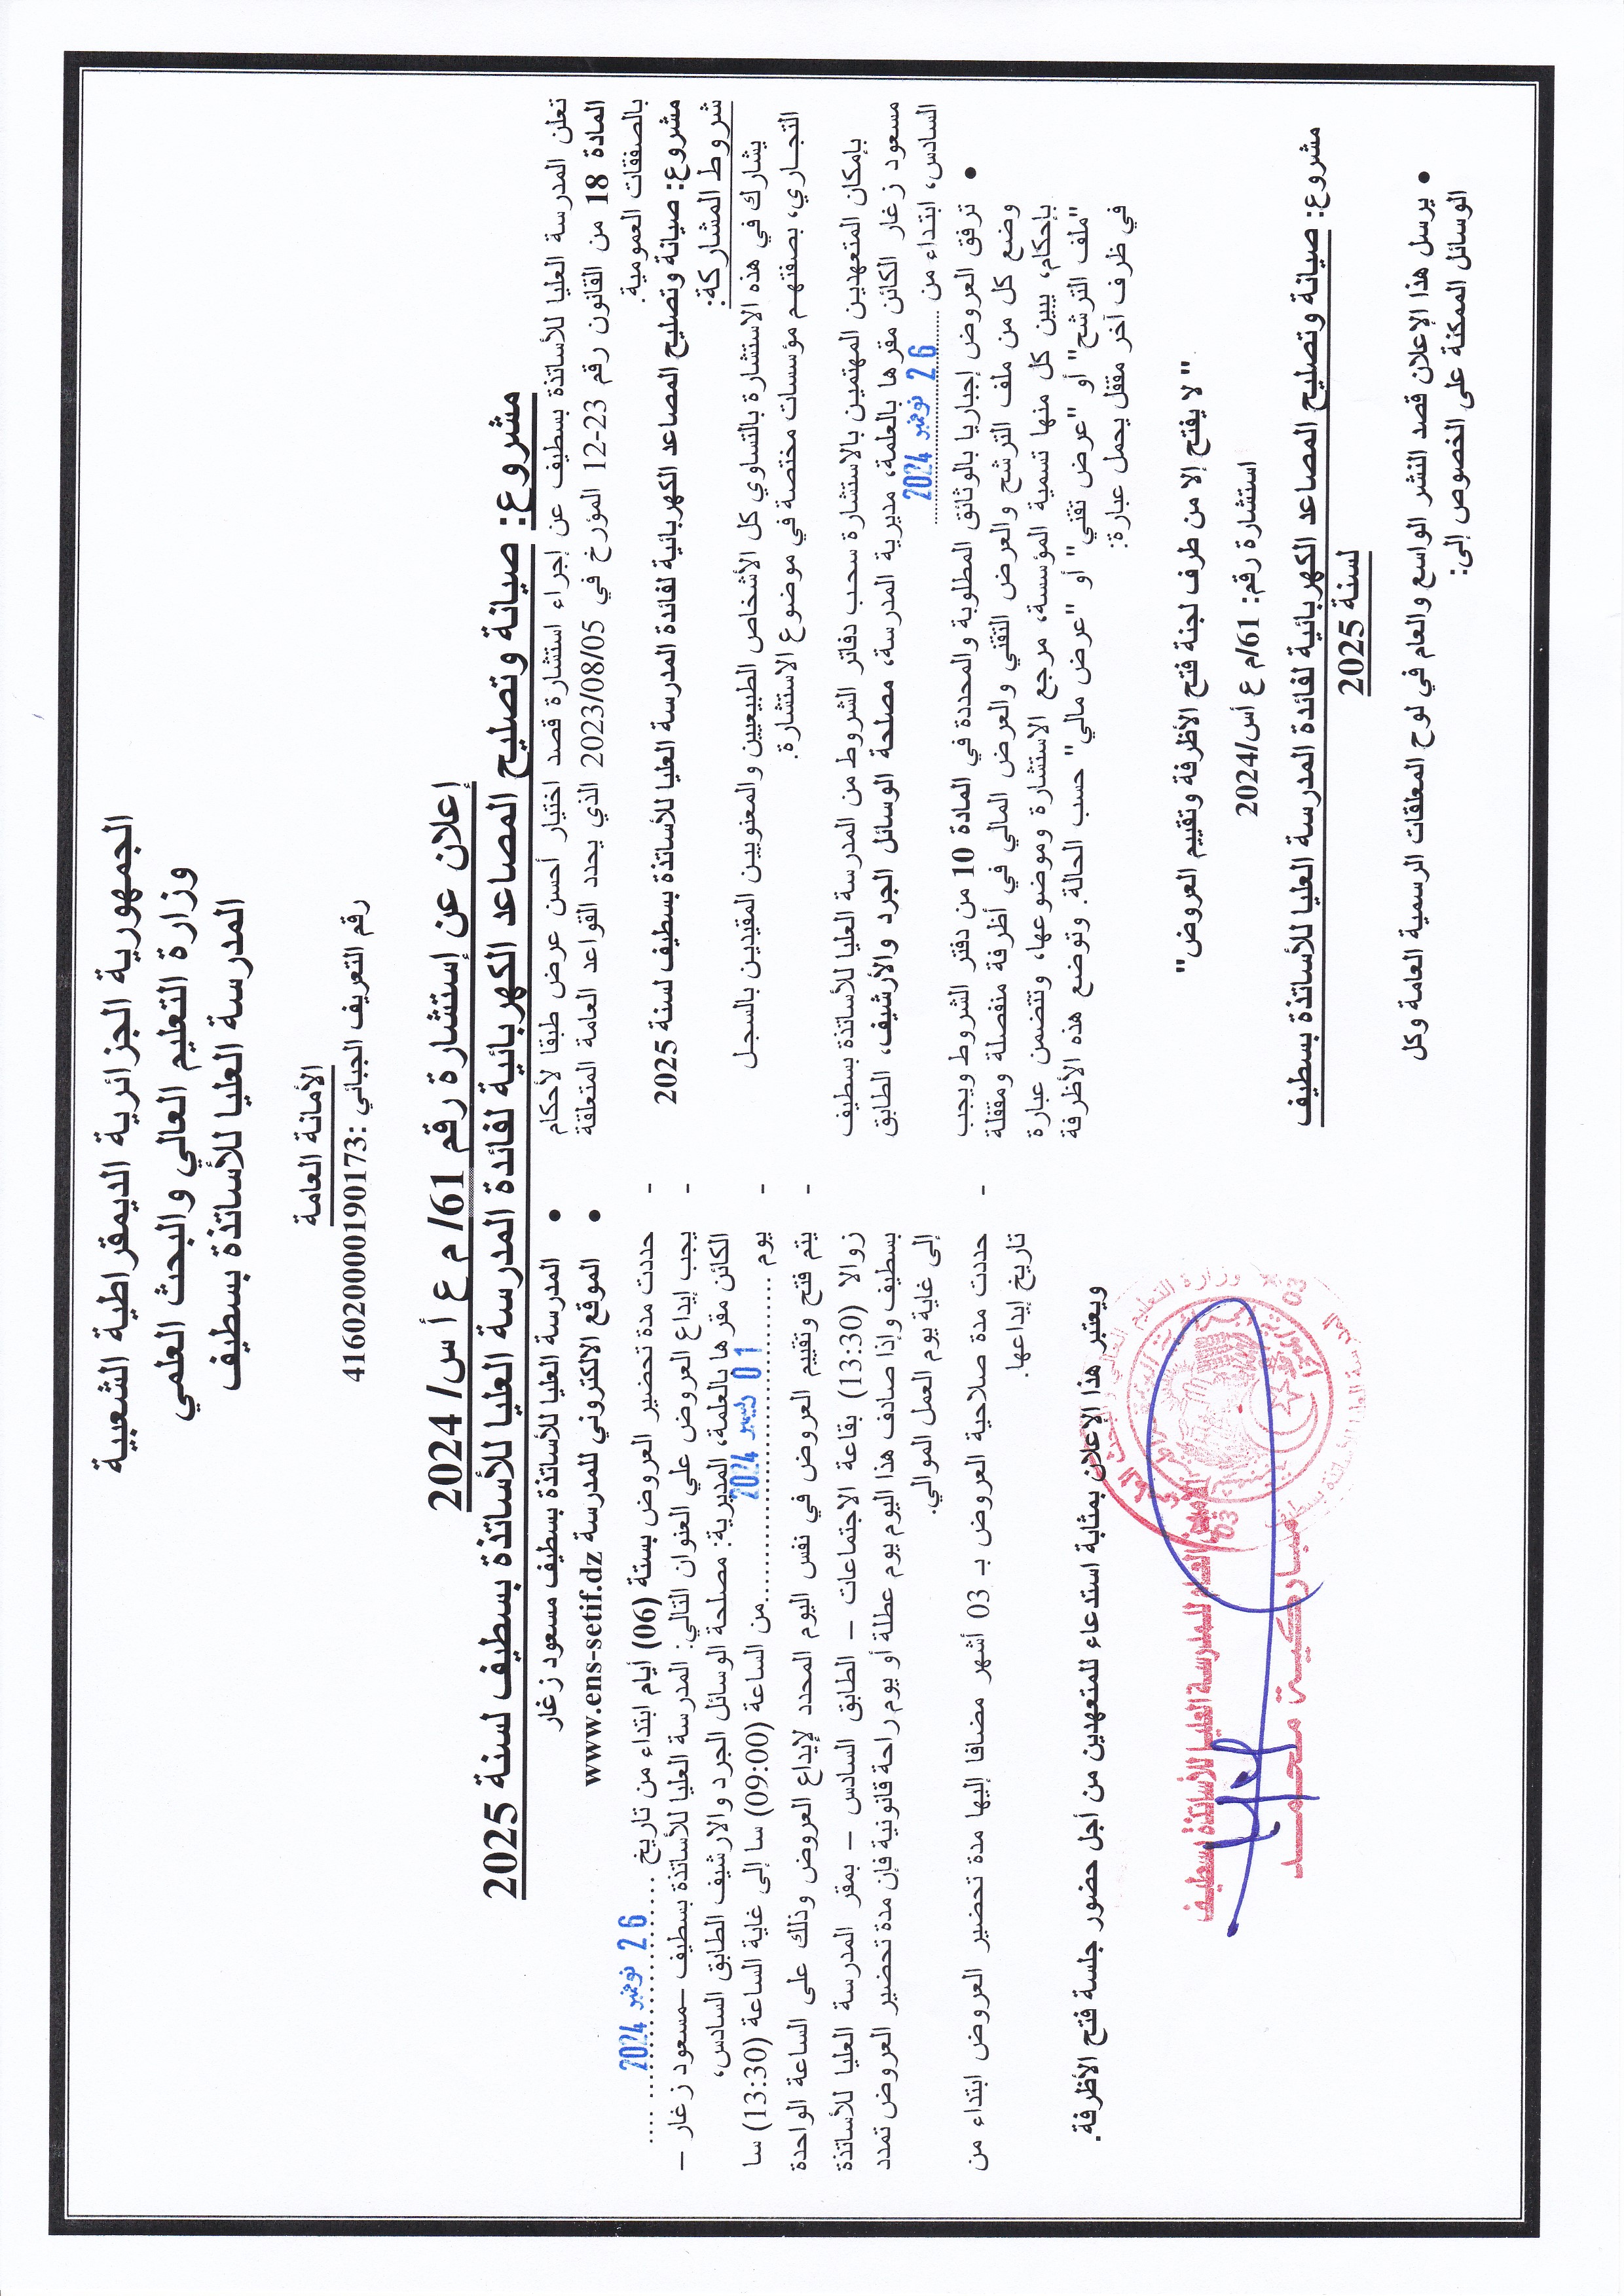 الجمهورية الجزائرية الديمقراطية الشعبية
وزارة التعليم العالي والبحث العلمي
المدرسة العليا للأساتذة بسطيف
الأمانة العامة
رقم التعريف الجبائي :416020000190173
إعلان عن إستشارة رقم 61/ م ع أ س/ 2024
مشروع: صيانة وتصليح المصاعد الكهربائية لفائدة المدرسة العليا للأساتذة بسطيف لسنة 2025
تعلن المدرسة العليا للأساتذة بسطيف عن إجراء استشارة قصد اختيار أحسن عرض طبقا لأحكام
المادة 18 من القانون رقم 23-12 المؤرخ في 2023/08/05 الذي يحدد القواعد العامة المتعلقة
بالصفقات العمومية.
مشروع: صيانة وتصليح المصاعد الكهربائية لفائدة المدرسة العليا للأساتذة بسطيف لسنة 2025
شروط المشاركة:
يشارك في هذه الاستشارة بالتساوي كل الأشخاص الطبيعيين والمعنويين المقيدين بالسجل
التجاري، بصفتهم مؤسسات مختصة في موضوع الاستشارة.
بإمكان المتعهدين المهتمين بالاستشارة سحب دفاتر الشروط من المدرسة العليا للأساتذة بسطيف
مسعود زغار الكائن مقرها بالعلمة، مديرية المدرسة، مصلحة الوسائل الجرد والأرشيف، الطابق
السادس، ابتداء من 26 نوفمبر 2024
• ترفق العروض إجباريا بالوثائق المطلوبة والمحددة في المادة 10 من دفتر الشروط ويجب
وضع كل من ملف الترشح والعرض التقني والعرض المالي في أظرفة منفصلة ومقفلة
بإحكام، يبين كل منها تسمية المؤسسة، مرجع الاستشارة وموضوعها، وتتضمن عبارة
"ملف الترشح" أو "عرض تقني" أو "عرض مالي" حسب الحالة. وتوضع هذه الأظرفة
في ظرف آخر مقفل يحمل عبارة:
" لا يفتح إلا من طرف لجنة فتح الأظرفة وتقييم العروض"
استشارة رقم: 61/م ع أس/2024
مشروع: صيانة وتصليح المصاعد الكهربائية لفائدة المدرسة العليا للأساتذة بسطيف
لسنة 2025
• يرسل هذا الإعلان قصد النشر الواسع والعام في لوح المعلقات الرسمية العامة وكل
الوسائل الممكنة على الخصوص إلى:
• المدرسة العليا للأساتذة بسطيف مسعود زغار
• الموقع الالكتروني للمدرسة www.ens-setif.dz
- حددت مدة تحضير العروض بستة (06) أيام ابتداء من تاريخ 26 نوفمبر 2024
- يجب إيداع العروض علي العنوان التالي: المدرسة العليا للأساتذة بسطيف –مسعود زغار –
الكائن مقرها بالعلمة، المديرية: مصلحة الوسائل الجرد والارشيف الطابق السادس،
- يوم 01 ديسمبر 2024 من الساعة (09:00) سا إلى غاية الساعة (13:30) سا
- يتم فتح وتقييم العروض في نفس اليوم المحدد لإيداع العروض وذلك على الساعة الواحدة
زوالا (13:30) بقاعة الاجتماعات – الطابق السادس – بمقر المدرسة العليا للأساتذة
بسطيف وإذا صادف هذا اليوم يوم عطلة أو يوم راحة قانونية فإن مدة تحضير العروض تمدد
إلى غاية يوم العمل الموالي.
- حددت مدة صلاحية العروض بـ 03 أشهر مضافا إليها مدة تحضير العروض ابتداء من
تاريخ إيداعها.
ويعتبر هذا الإعلان بمثابة استدعاء للمتعهدين من أجل حضور جلسة فتح الأظرفة.
العام للمدرسة العليا للأساتذة بسطيف
مباركية محمد